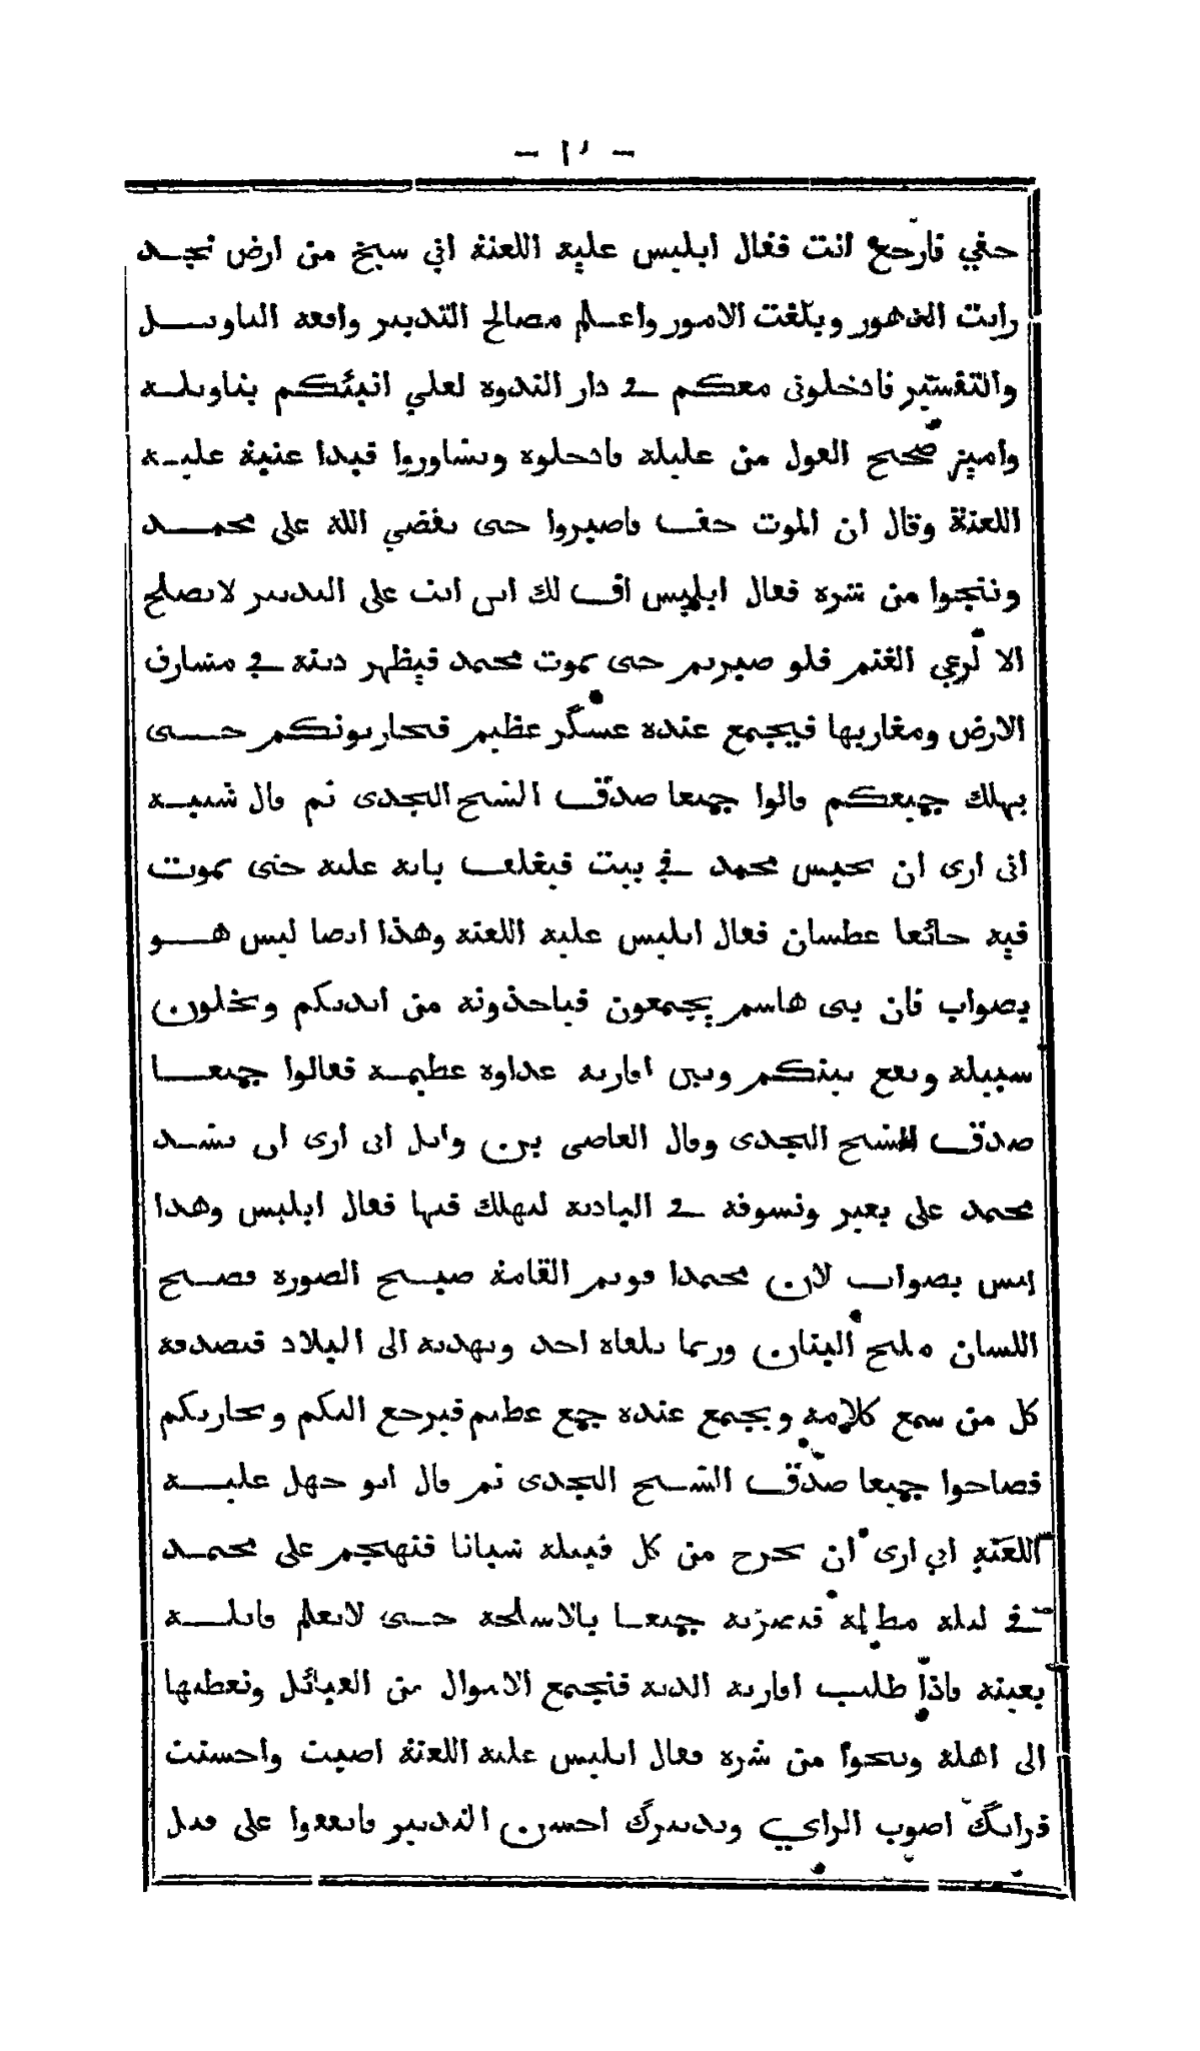 خفي فارجع انت فقال ابليس عليه اللعنة اني شيخ من ارض نجد
رايت الدهور وبلغت الامور واعلم مصالح التدبير واقعه التاويل
والتفسير فادخلوني معكم في دار الندوه لعلي انبئكم بتاويله
واميز صحيح القول من عليله فادخلوه وتشاوروا فبدا عتبة عليه
اللعنة وقال ان الموت حقا فاصبروا حتى يقضي الله على محمد
وننجوا من شره فقال ابليس اف لك انى انت على التدبير لاتصلح
الا لرعي الغنم فلو صبرتم حتى يموت محمد فيظهر دينه في مشارق
الارض ومغاربها فيجمع عنده عسكر عظيم فيحاربونكم حتى
يهلك جميعكم قالوا جميعا صدق الشيخ النجدى ثم قال شيبه
انى ارى ان يحبس محمد في بيت فيغلق بابه عليه حتى يموت
فيه جائعا عطشان فقال ابليس عليه اللعنه وهذا ايضا ليس هو
بصواب فان بنى هاشم يجمعون فياخذونه من ايديكم ويخلون
سبيله وتقع بينكم وبين اقاربه عداوه عظيمه فقالوا جميعا
صدق الشيخ النجدى وقال العاصى بن وايل انى ارى ان نشد
محمد على بعير ونسوقه في الباديه ليهلك فيها فقال ابليس وهذا
ليس بصواب لان محمدا قويم القامة صبيح الصوره فصيح
اللسان مليح البنان وربما يلقاه احد ويهديه الى البلاد فيصدقه
كل من سمع كلامه ويجمع عنده جمع عظيم فيرجع اليكم ويحاربكم
فصاحوا جميعا صدق الشيخ النجدى ثم قال ابو جهل عليه
اللعنه اني ارى ان يخرج من كل قبيله شبانا فنهجم على محمد
في ليله مظلمه فنضربه جميعا بالاسلحه حتى لايعلم قاتله
بعينه فاذا طلب اقاربه الديه فنجمع الاموال من القبائل ونعطيها
الى اهله وننجوا من شره فقال ابليس عليه اللعنة اصبت واحسنت
فرايك اصوب الراي وتدبيرك احسن التدبير فاتفقوا على قتل